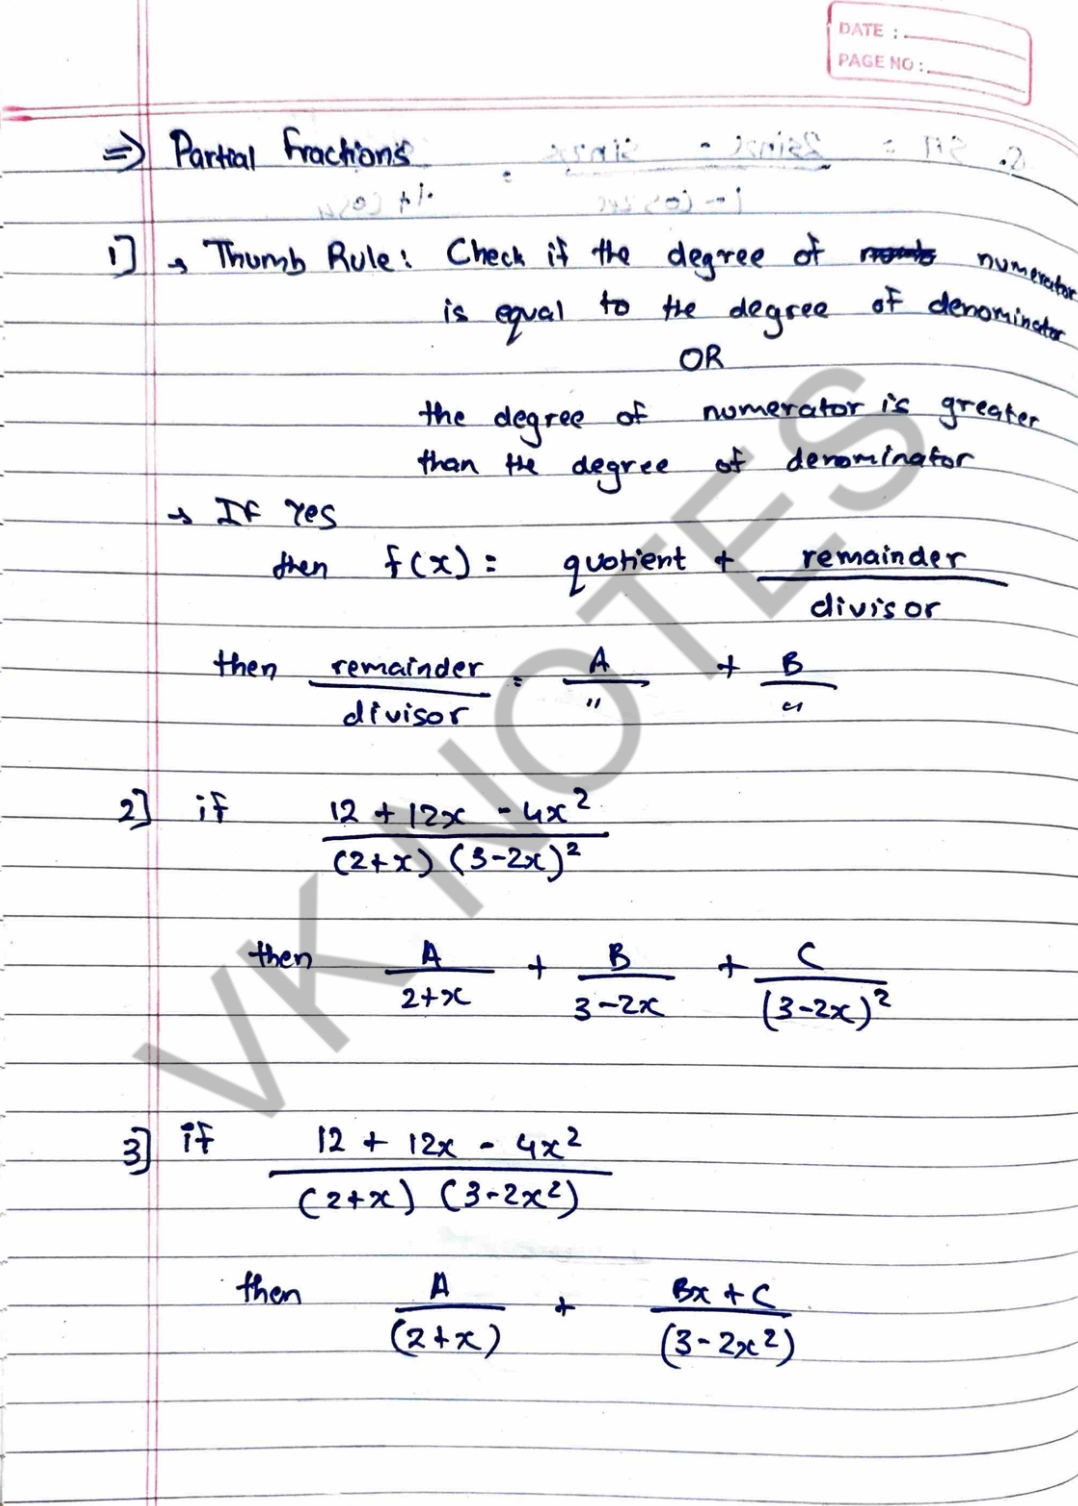 DATE :
PAGE NO :
⇒ Partial fractions
1] → Thumb Rule: Check if the degree of numerator
is equal to the degree of denominator
OR
the degree of numerator is greater
than the degree of denominator
→ If Yes
then f(x) = quotient + remainder / divisor
then remainder / divisor = A / " + B / "
2] if 12 + 12x - 4x² / (2+x) (3-2x)²
then A / 2+x + B / 3-2x + C / (3-2x)²
3] if 12 + 12x - 4x² / (2+x) (3-2x²)
then A / (2+x) + Bx + C / (3-2x²)
VK NOTES